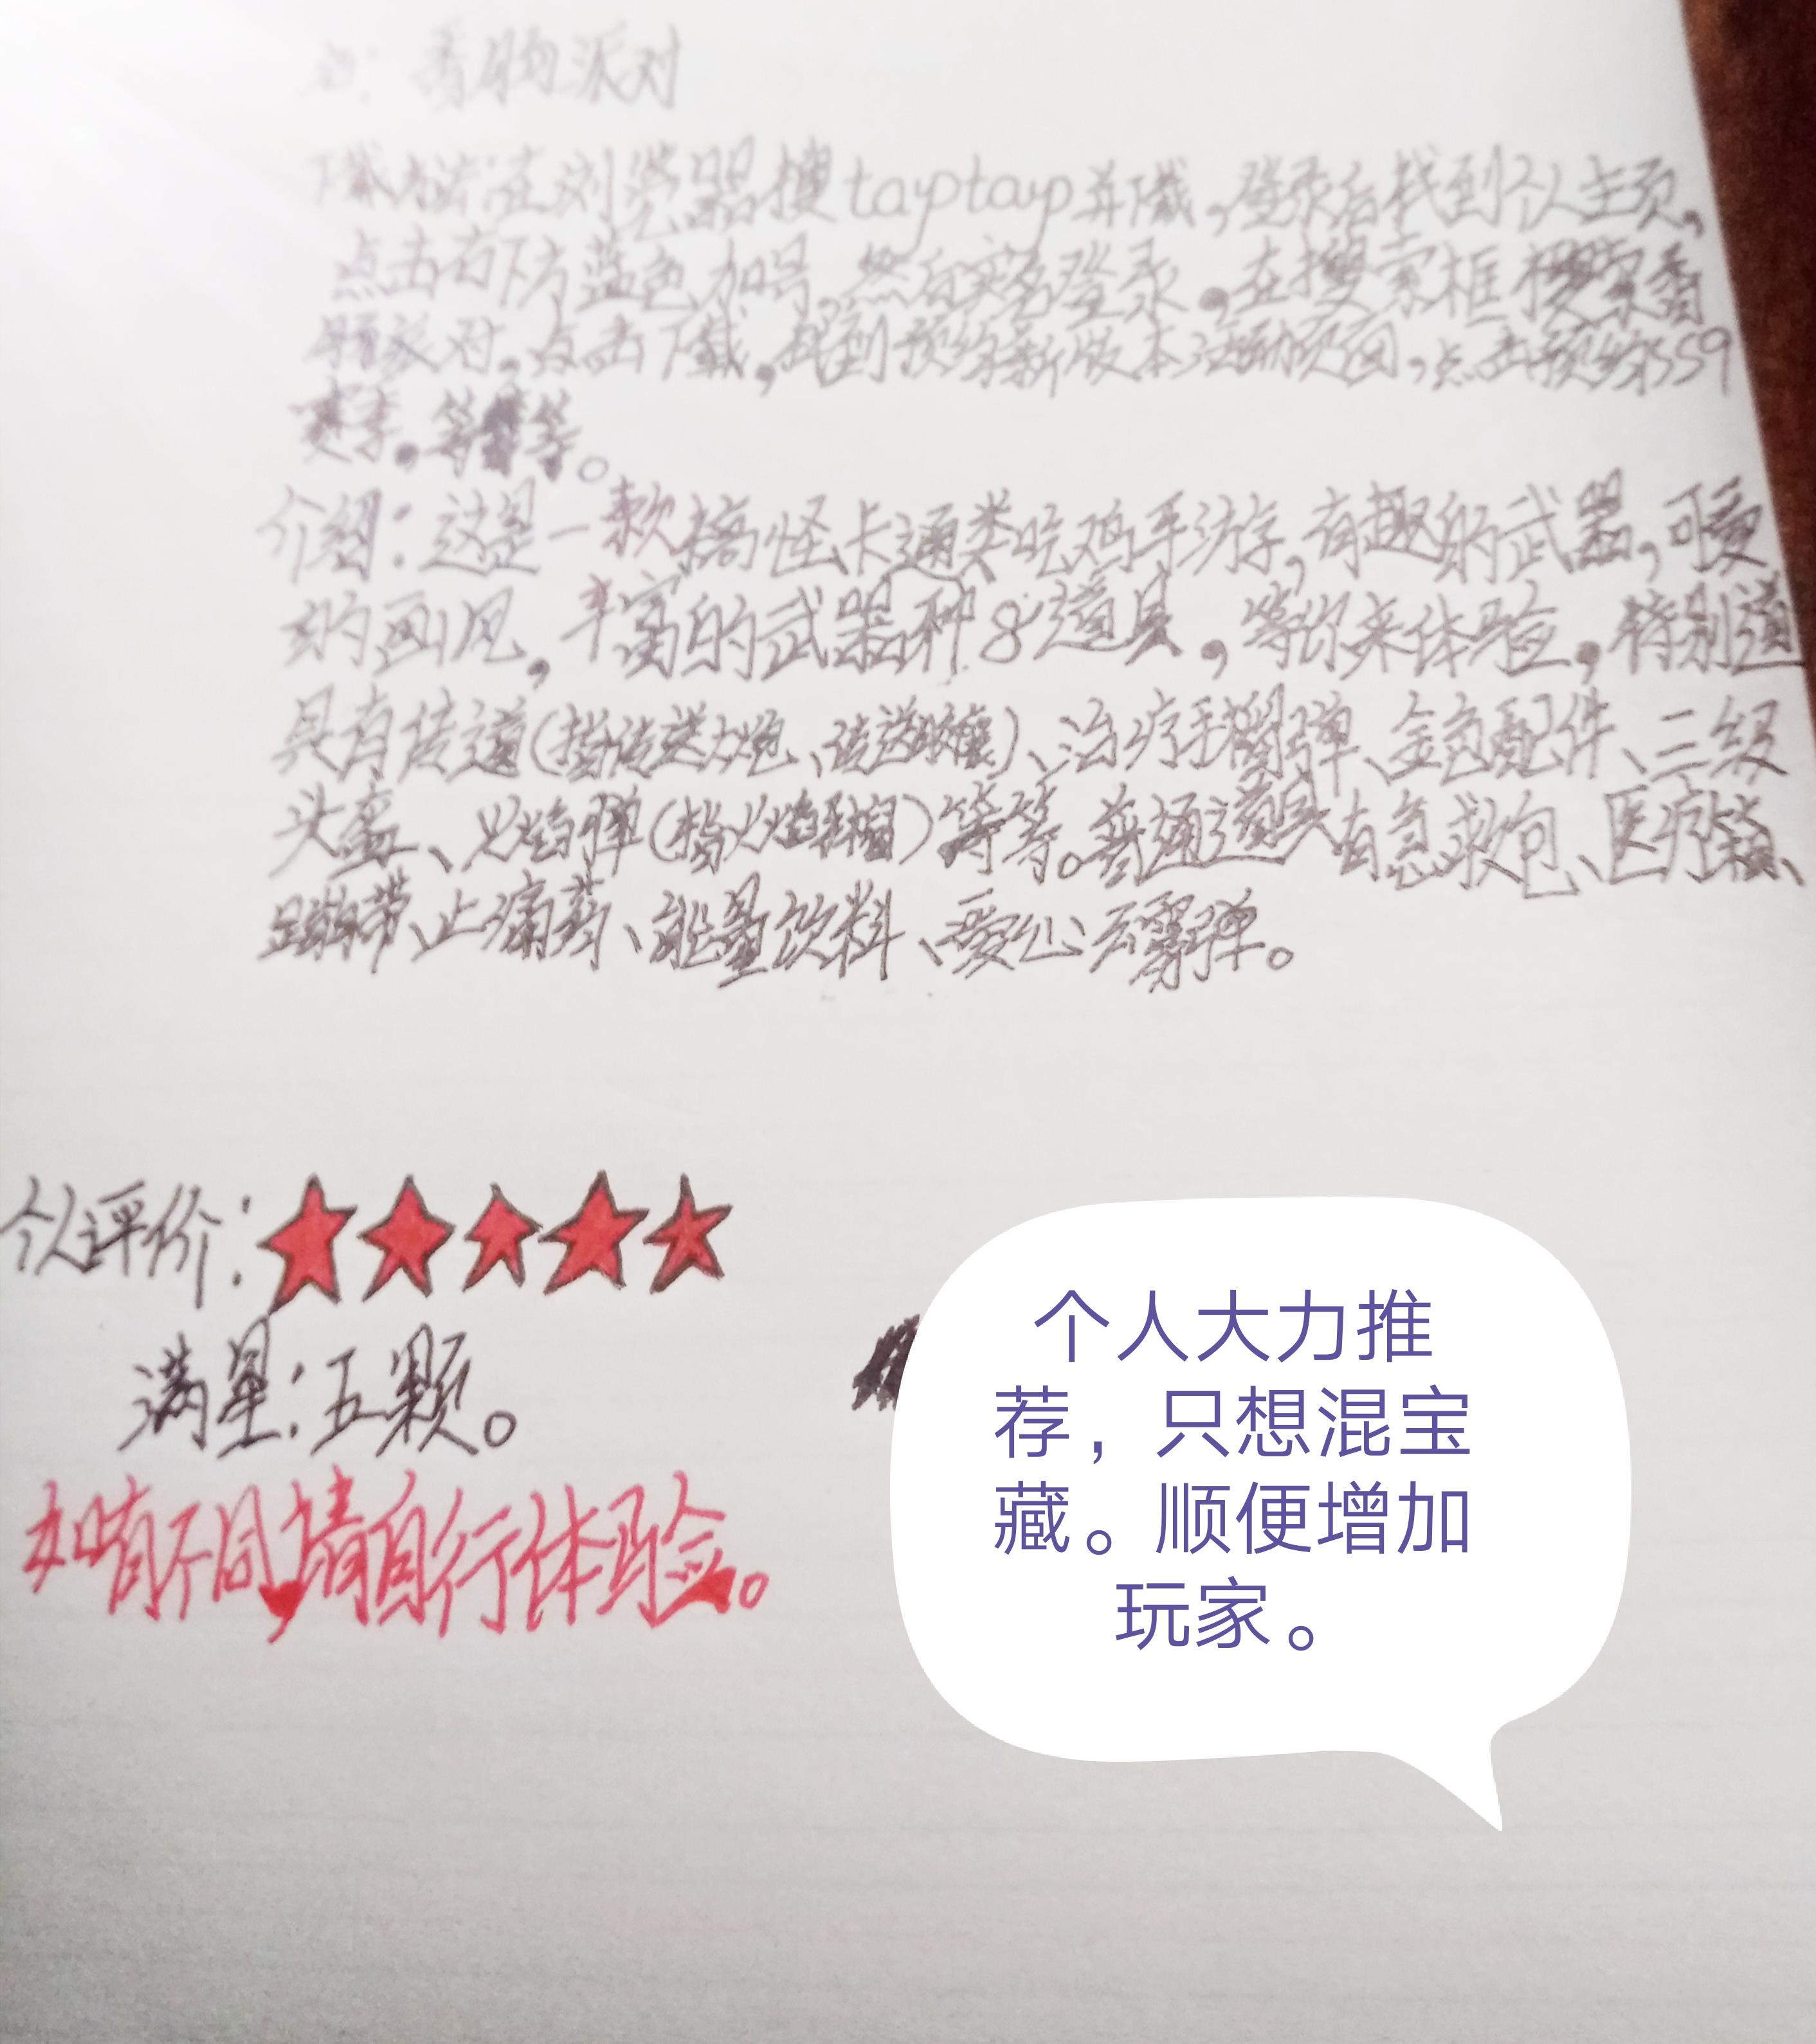 香肠派对
下载方法:在浏览器搜taptap并下载,登录后找到个人主页,
点击右下方蓝色加号,然后实名登录,在搜索框搜索香
肠派对,点击下载,找到预约新版本活动页面,点击预约SS9
赛季,等等。
介绍:这是一款搞怪卡通类吃鸡手游,有趣的武器,可爱
的画风,丰富的武器种&道具,等你来体验,特别道
具有传道(指传送大炮、传送胶囊)、治疗手榴弹、金色配件、三级
头盔、火焰弹(指火焰手榴)等等。普通道具有急救包、医疗箱、
绷带、止痛药、能量饮料、爱心云雾弹。
个人评价:★★★★★
满星:五颗。
如有不同,请自行体验。
个人大力推
荐，只想混宝
藏。顺便增加
玩家。